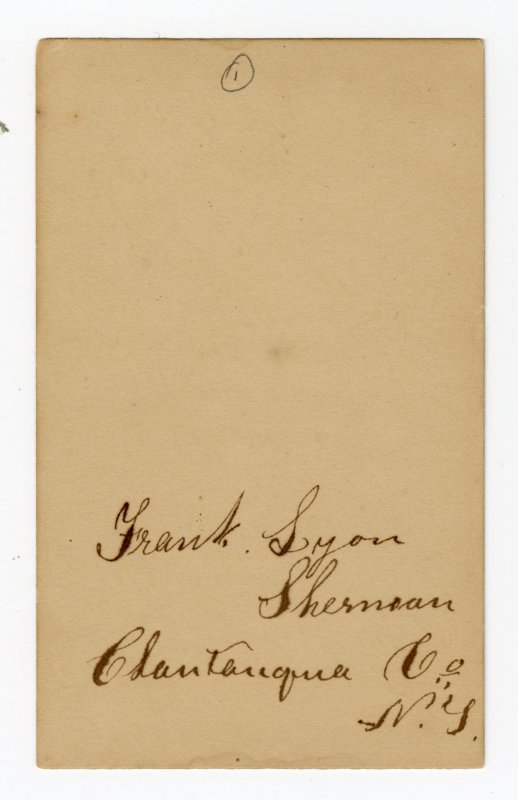 1
Frank. Lyon
Sherman
Chautauqua Co.
N.Y.